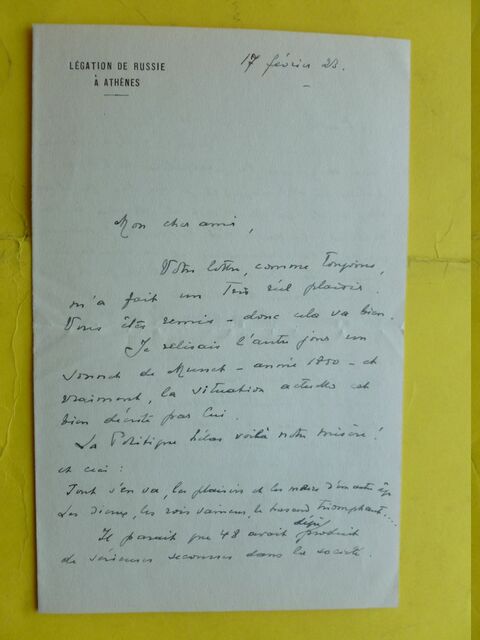 LÉGATION DE RUSSIE
À ATHÈNES
17 février 23.
Mon cher ami,
Votre lettre, comme toujours,
m'a fait un très réel plaisir.
Vous êtes remis - donc cela va bien.
Je relisais l'autre jour un
sonnet de Musset - année 1850 - et
vraiment, la situation actuelle est
bien décrite par lui.
La Politique hélas voilà notre misère!
et ceci :
Tout s'en va, les plaisirs et les mœurs d'un autre âge
Les Dieux, les rois vaincus, le hasard triomphant....
Il parait que 48 avait déjà produit
de sérieuses secousses dans la société.